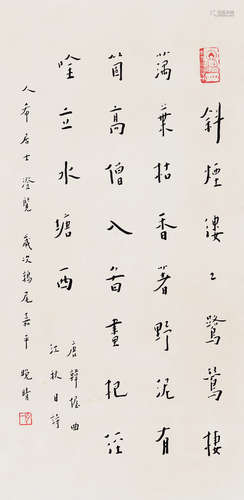 斜煙縷々鷺鷥棲
蕅葉枯香著野泥有
箇高僧入啚畫把徑
唫立水塘西
唐韓偓曲
江秋日詩
人希居士澄覽 歲次鶉尾嘉平 晚晴